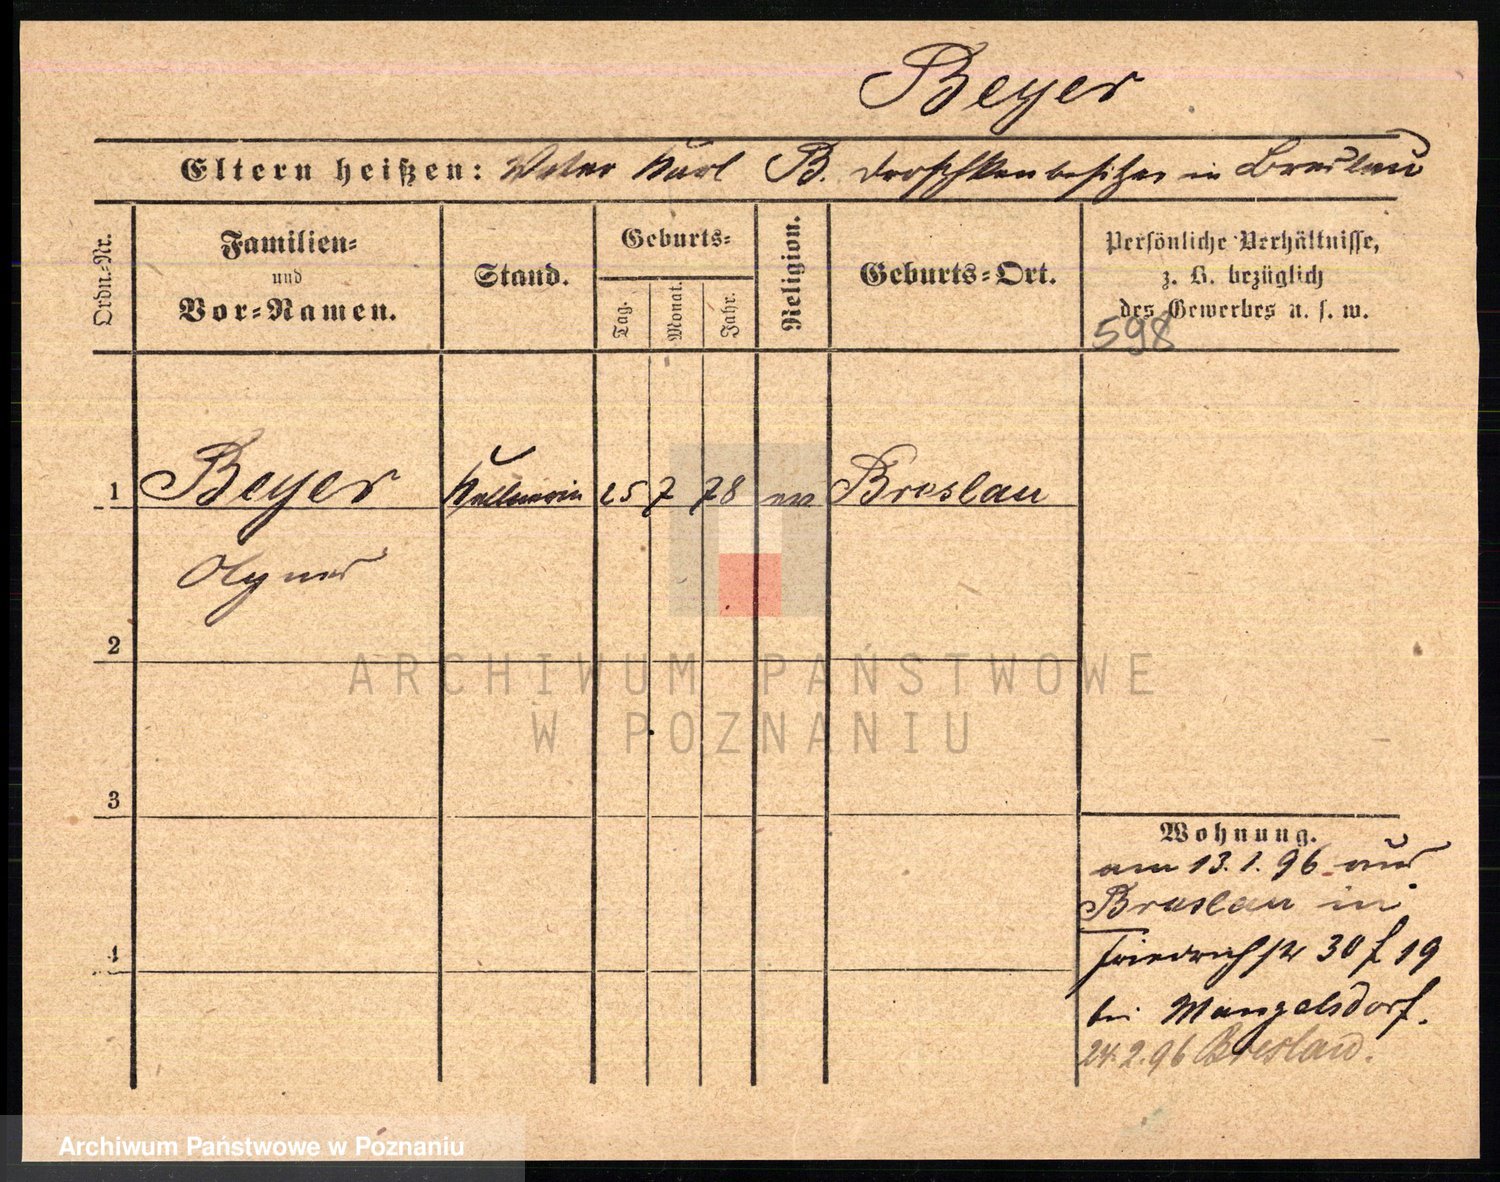 Beyer
Eltern heißen: Vater Karl B. Droschkenbesitzer in Breslau
Ordn.-Nr.
Familien-
und
Vor-Namen.
Stand.
Geburts-
Tag.
Monat.
Jahr.
Religion.
Geburts-Ort.
Persönliche Verhältnisse,
z. B. bezüglich
des Gewerbes u. s. w.
598
1 Beyer Kellnerin 25 7 78 ev. Breslau
Agnes
2
3
4
Wohnung.
am 13.1.96 aus
Breslau in
Friedrichstr 30 f 19
bei Mangelsdorf.
24.2.96 Breslau.
ARCHIWUM PAŃSTWOWE
W POZNANIU
Archiwum Państwowe w Poznaniu